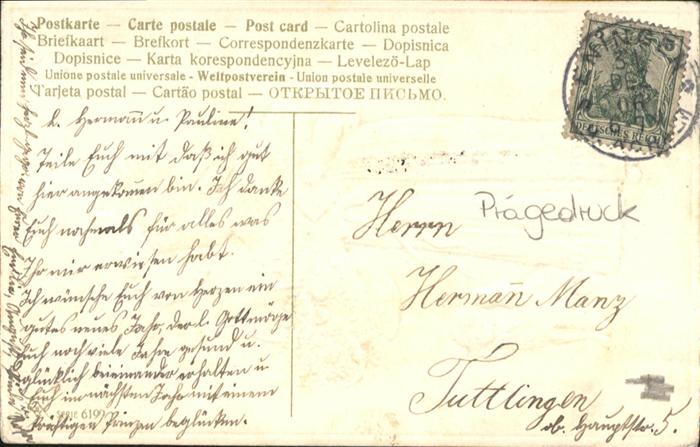 Postkarte — Carte postale — Post card — Cartolina postale
Briefkaart — Brefkort — Correspondenzkarte — Dopisnica
Dopisnice — Karta korespondencyjna — Levelező-Lap
Unione postale universale - Weltpostverein - Union postale universelle
Tarjeta postal — Cartão postal — ОТКРЫТОЕ ПИСЬМО.
L. Hermann u. Pauline!
Teile Euch mit daß ich gut
hier angekommen bin. Ich danke
Euch nochmals für alles was
Ihr mir erwiesen habt.
Ich wünsche Euch von Herzen ein
gutes neues Jahr, der l. Gott möge
Euch noch viele Jahre gesund u.
glücklich beieinander erhalten u
Euch im nächsten Jahr mit einem
kräftigen Prinzen beglücken.
SERIE 6199
DEUTSCHES REICH
5
Prägedruck
Herrn
Hermann Manz
Tuttlingen
ob. Hauptstr. 5.